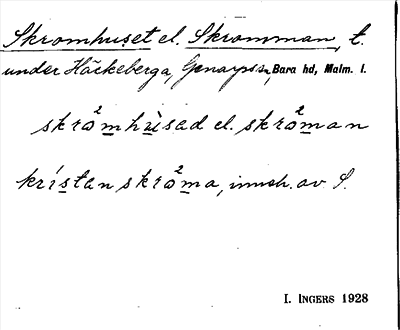 Skromhuset el. Skromman, t.
under Häckeberga, Genarps sn, Bara hd, Malm. l.
skro²m̲hùsad el. skro²m̲an
krístan skro²m̲a, inneh. av S.
I. INGERS 1928